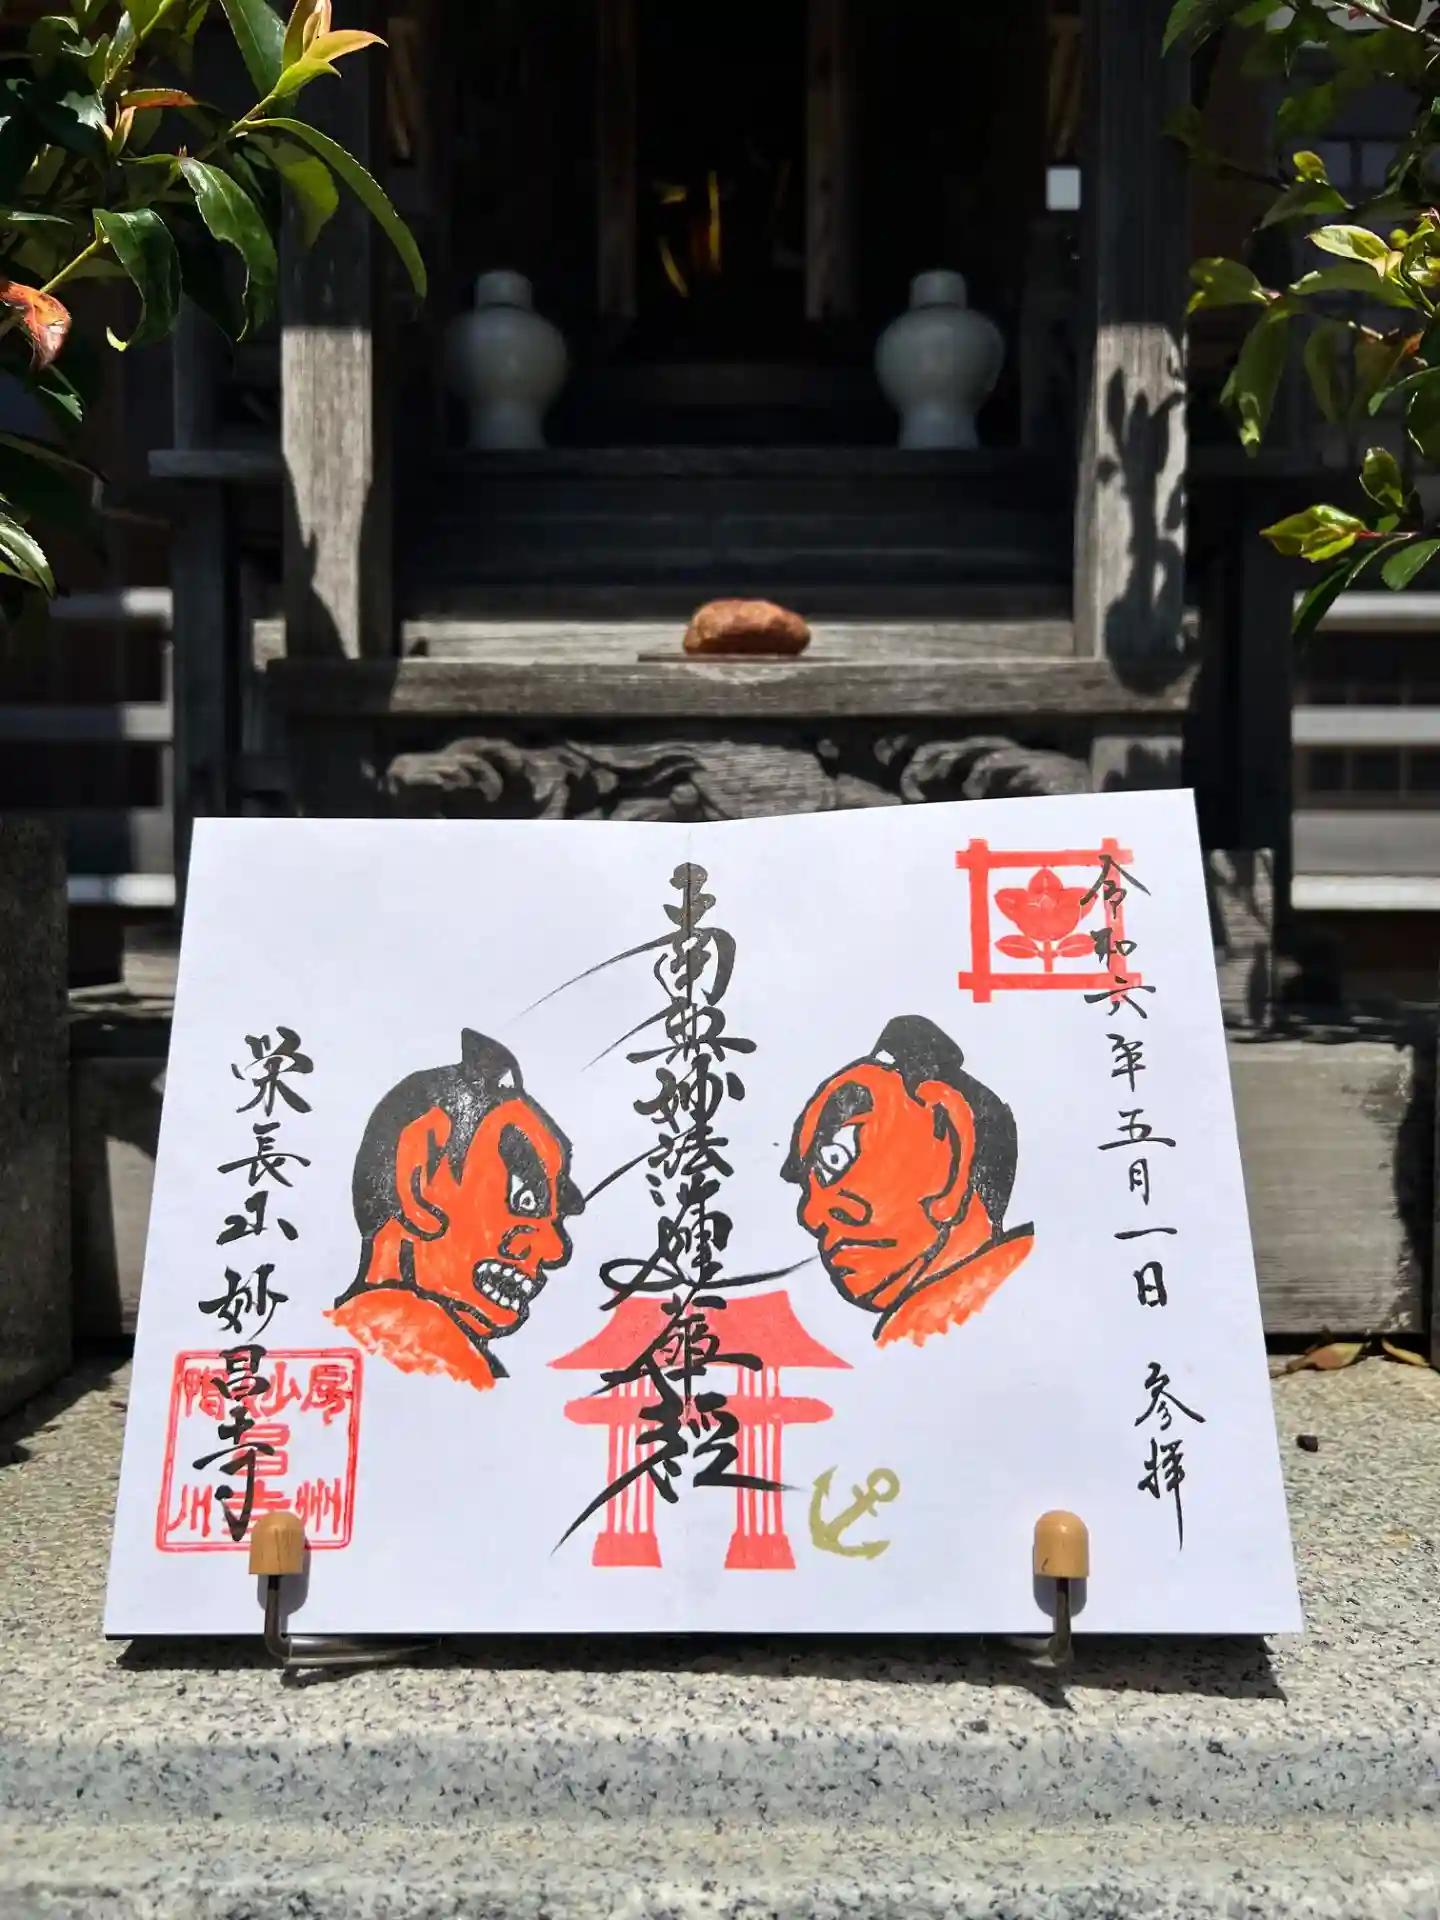 令和六年五月一日　参拝
南無妙法蓮華経
栄長山妙昌寺
房州
妙昌寺
鴨川